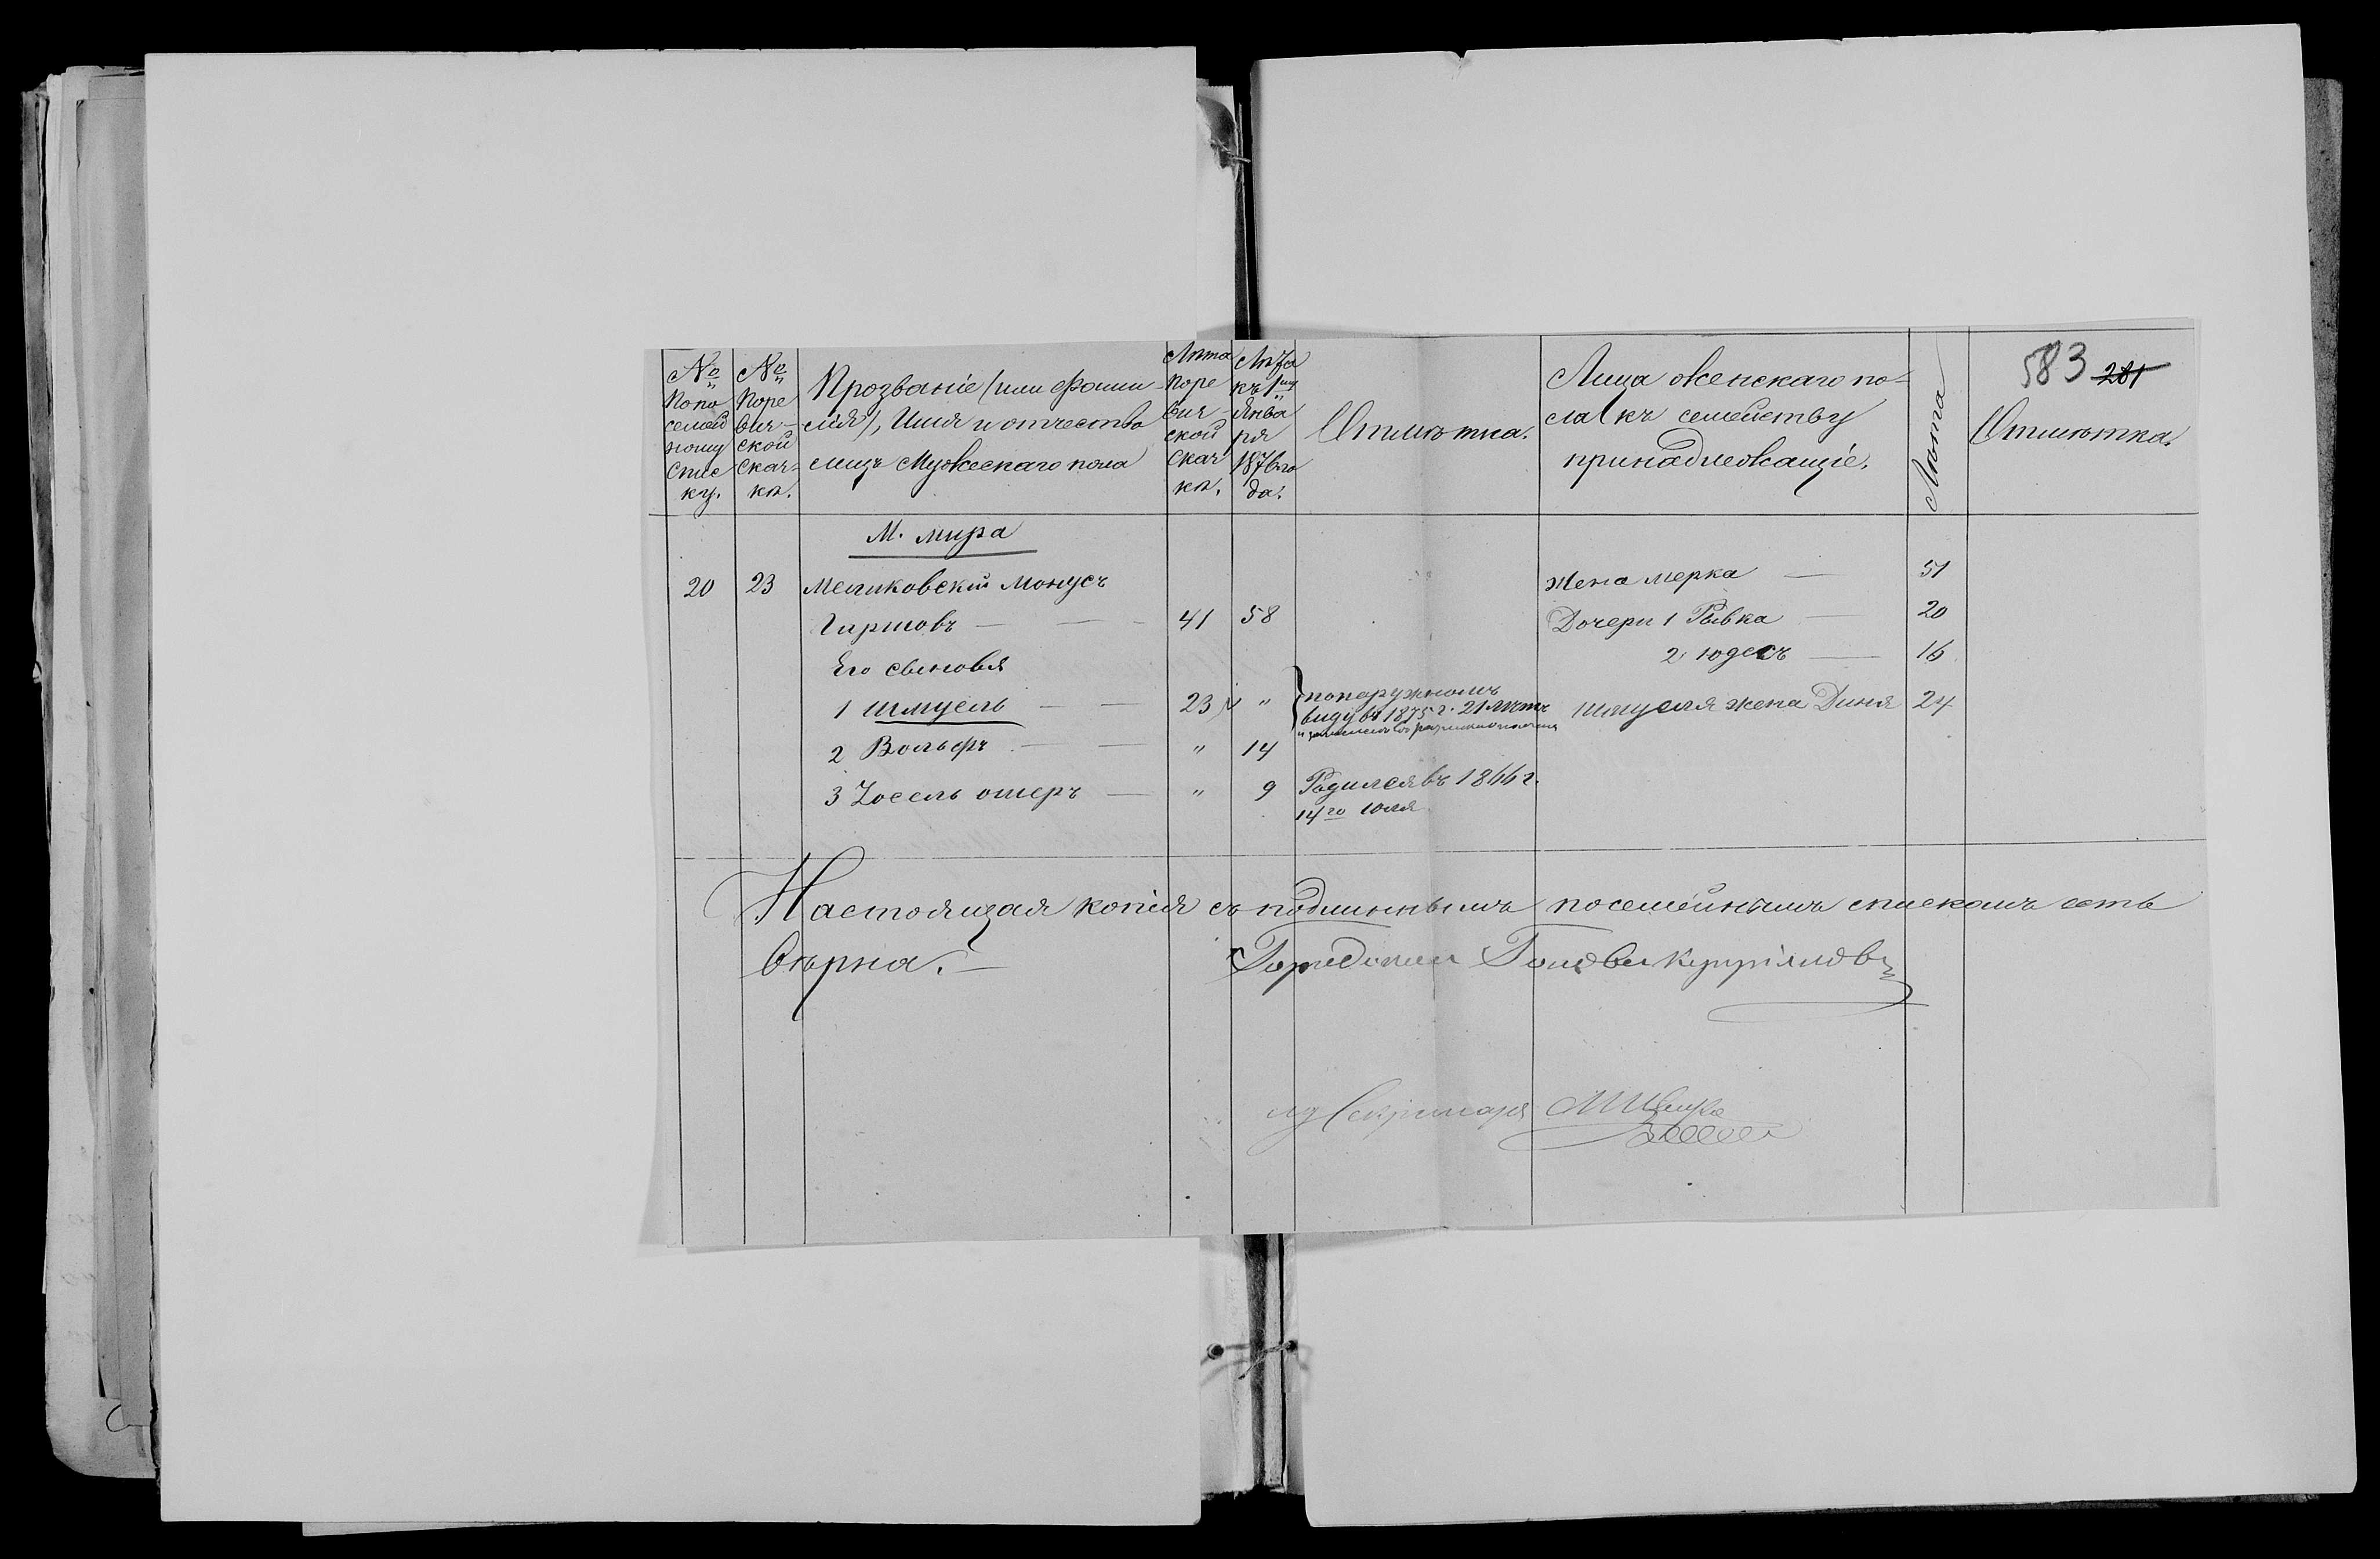 583 281
№ По по семей ному Спис ку.
№ Поре виз- ской Сказ- кѣ.
Прозваніе (или Фами- лія), Имя и отчество лицъ Мужескаго пола
Лѣта Поре виз- ской Сказ кѣ.
Лѣта къ 1му Янва ря 1876 го да.
Отмѣтка.
Лица женскаго по- ла къ семейству принадлежащіе.
Лѣта
Отмѣтка.
М. Мира
20 23 Меликовскій Монусъ жена Мерка — 51
Гиршовъ — — - 41 58 Дочери 1 Рывка — 20
Его сыновья 2 Юдесъ — 16
1 Шмуель — — 23 " по наружномъ виду въ 1875 г. 21 лѣтъ Шмуеля жена Диня 24
2 Вольфъ — — " 14
3 Іосель ошеръ — " 9 Родился въ 1866 г.
14го юля
Настоящая копія съ подлиннымъ посемейнымъ спискомъ есть
вѣрна. —
Секритаря